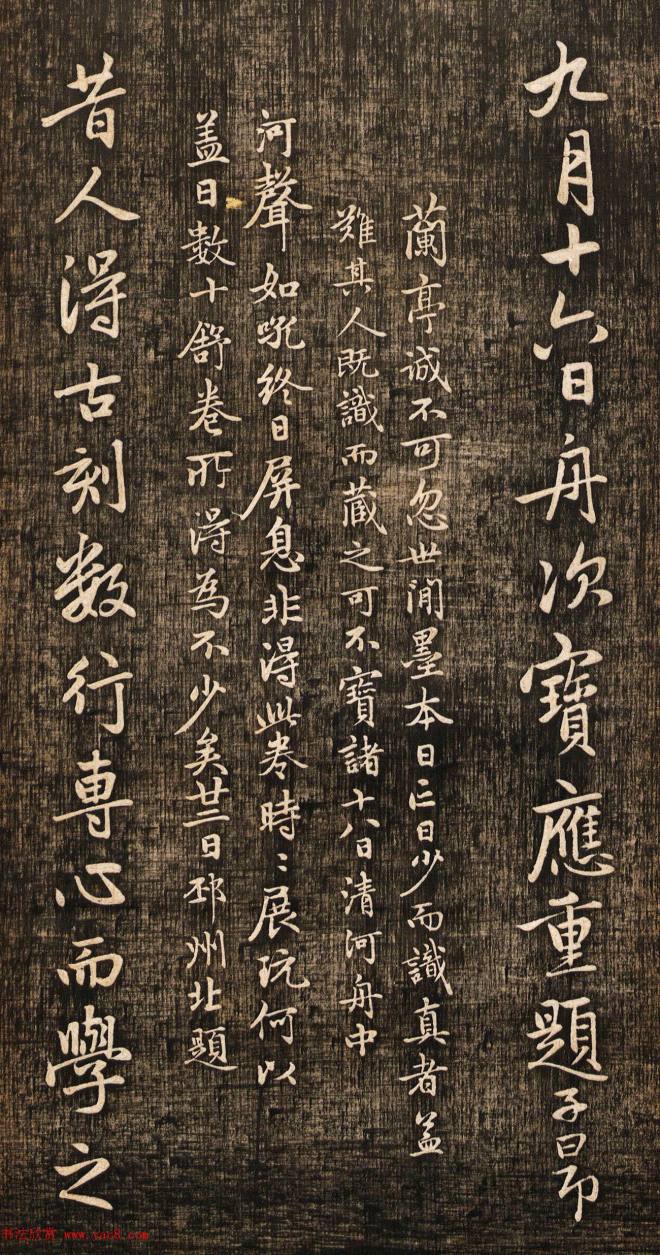 九月十六日舟次寶應重題子昂
蘭亭誠不可忽世間墨本日亡日少而識真者蓋
難其人既識而藏之可不寶諸十八日清河舟中
河聲如吼終日屏息非得此卷時〻展玩何以
蓋日數十舒卷所得為不少矣廿二日邳州北題
昔人得古刻数行専心而學之
书法欣赏 www.yac8.com